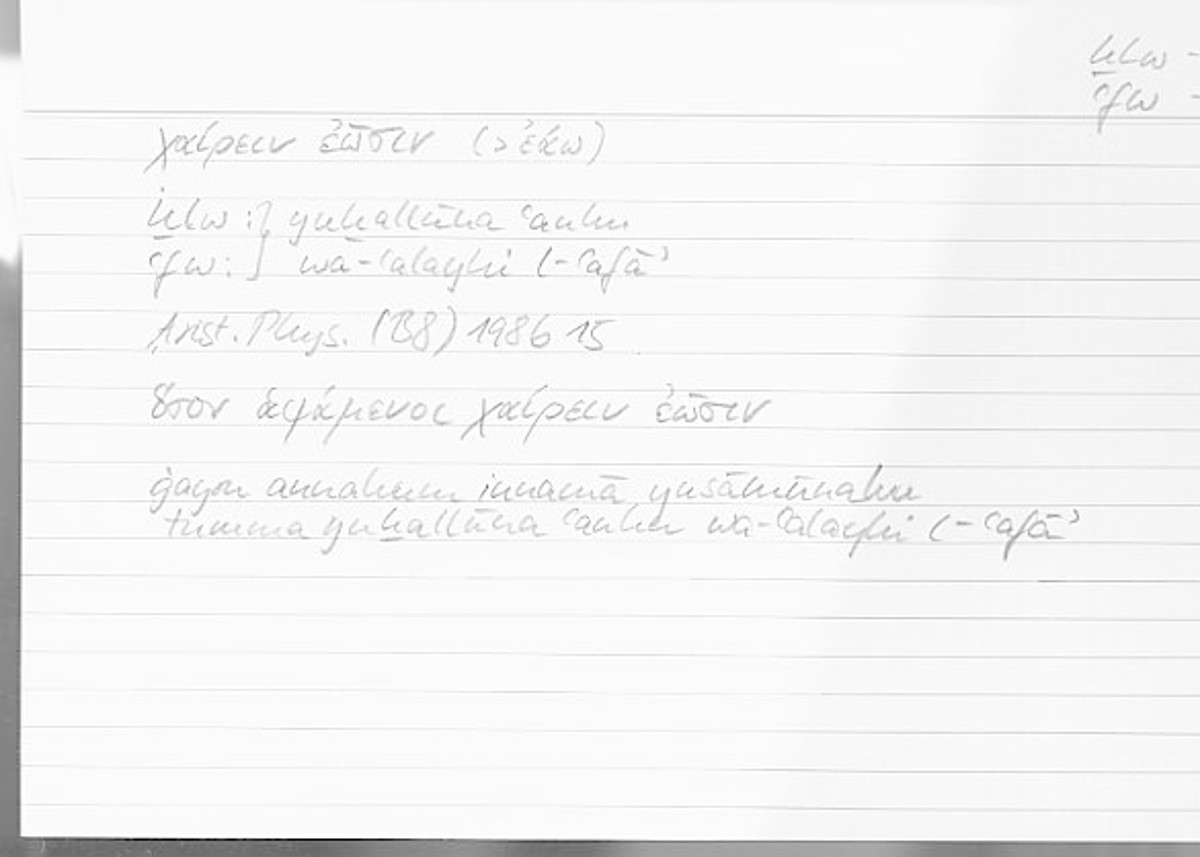 ḫlw -
ʿfw -
χαίρειν ἐῶσιν (> ἐάω)
ḫlw :] yuḫallūna ʿanhu
ʿfw : ] wa-ʿalayhi l-ʿafāʾ
Arist. Phys. (B8) 198b 15
ὅσον ἁψάμενος χαίρειν ἐῶσιν
ġayra annahum innamā yusāmūnahu
tumma yuḫallūna ʿanhu wa-ʿalayhi l-ʿafāʾ